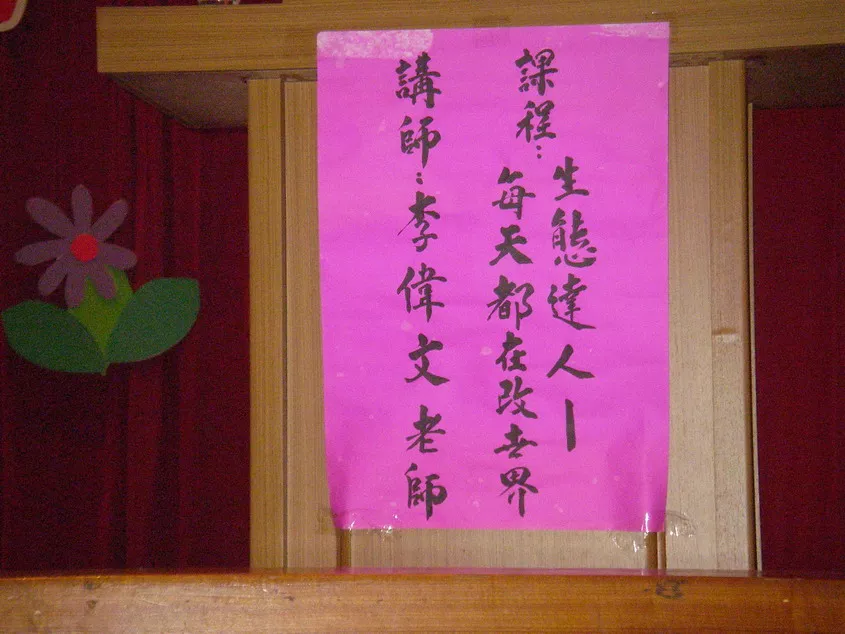 課程：
生態達人—
每天都在改世界
講師：李偉文老師